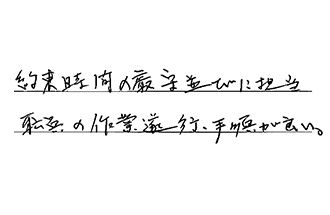 約束時間の厳守並びに担当
職員の作業遂行、手順が良い。